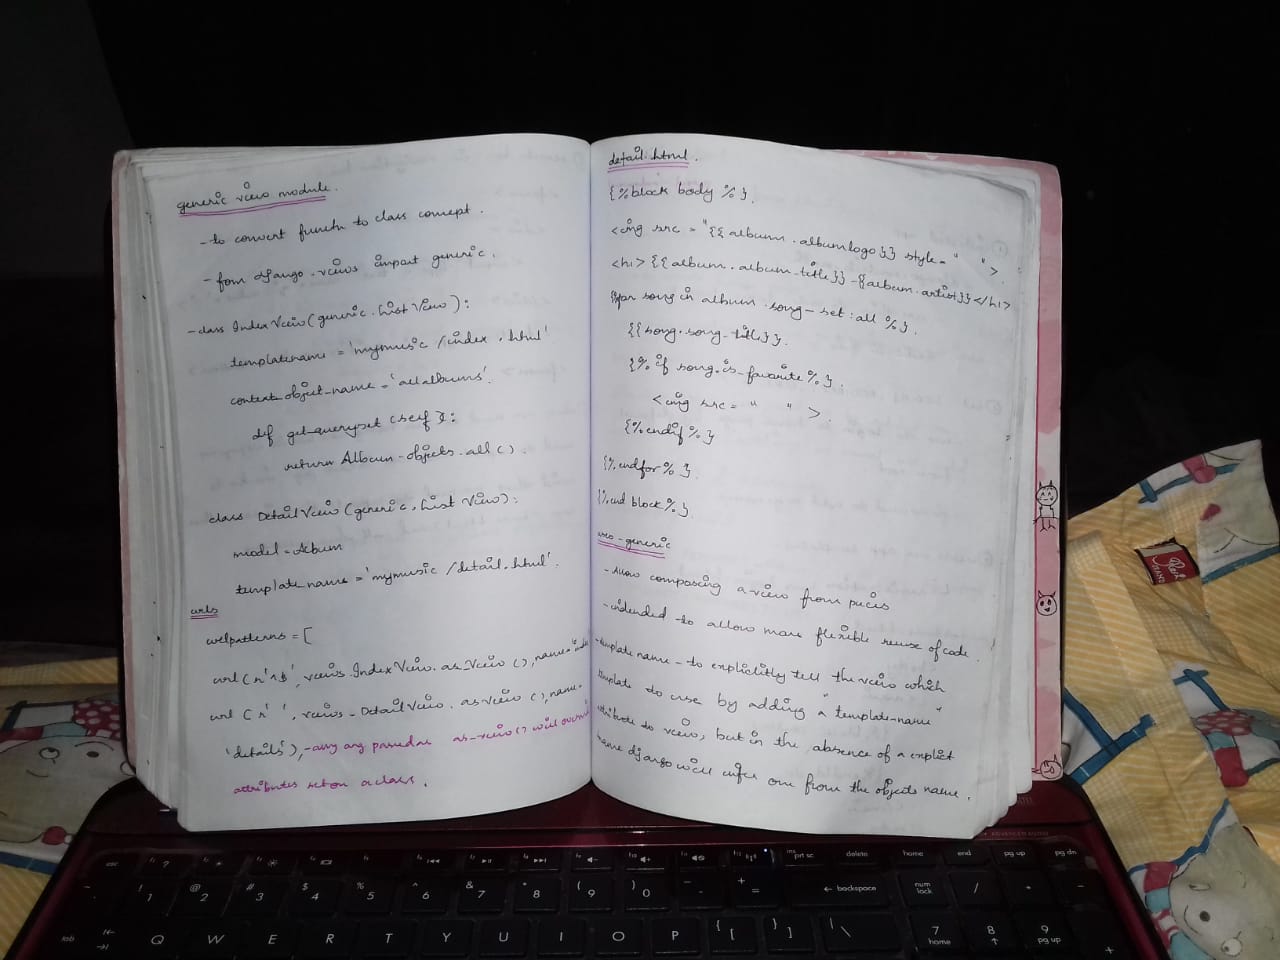 generic view module.
- to convert functn to class concept.
- from django.views import generic.
- class IndexView(generic.ListView):
template name = 'mymusic/index.html'
context_object_name = 'all albums'.
def get_queryset (self):
return Album.objects.all().
class DetailView(generic.ListView):
model = Album
template_name = 'mymusic/detail.html'.
urls
urlpatterns = [
url(r'^$', views.IndexView.as_View(), name='index
url(r' ', views.DetailView.as_view(), name=
'details'), - any arg passed as as_view() will override
attributes set on a class.
detail.html.
{% block body %}.
<img src = "{{album.albumlogo}} style=" ">
<h1>{{album.album_title}} - {album.artist}}</h1>
for song in album.song_set:all %}.
{{song.song_title}}.
{% if song.is_favorite %}.
<img src = " ">.
{% endif %}
{% endfor %}.
{% end block %}
views-generic
- Allow composing a view from pieces
- intended to allow more flexible reuse of code.
- template name - to explicitly tell the view which
template to use by adding a "template-name"
attribute to view, but in the absence of a explicit
name django will infer one from the objects name.
esc
prt sc
delete
home
end
pg up
pg dn
! 1
@ 2
# 3
$ 4
% 5
^ 6
& 7
* 8
( 9
) 0
- -
+ =
← backspace
num lock
/
*
-
tab
Q W E R T Y U I O P
{ [
} ]
| \
7 home
8 ↑
9 pg up
+